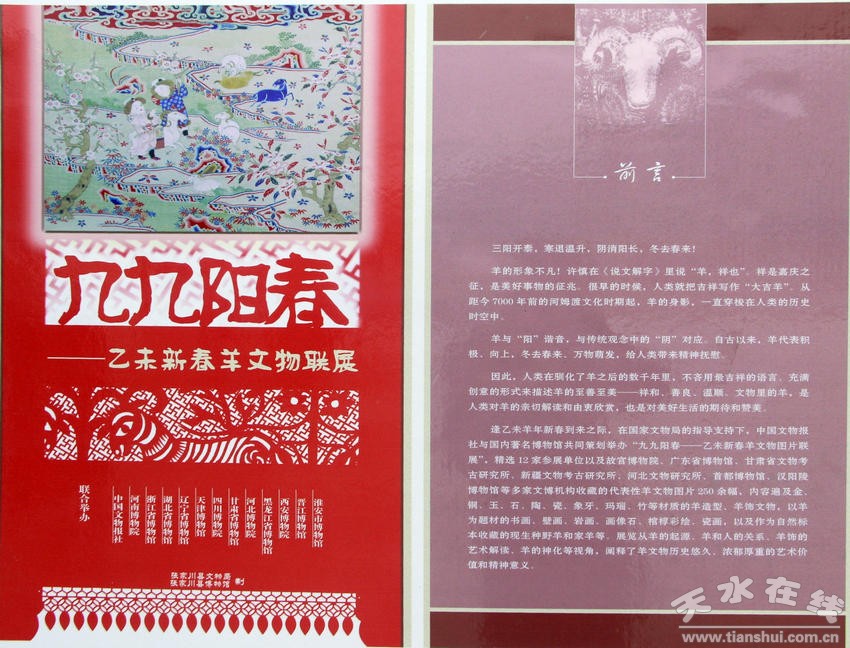 九九阳春
——乙未新春羊文物联展
联合举办
中国文物报社
河南博物院
浙江省博物馆
湖北省博物馆
辽宁省博物馆
天津博物馆
四川博物院
甘肃省博物馆
河北博物院
黑龙江省博物馆
西安博物院
晋江博物馆
淮安市博物馆
张家川县文物局
张家川县博物馆
制
·前言·
三阳开泰，寒退温升，阴消阳长，冬去春来！
羊的形象不凡！许慎在《说文解字》里说“羊，祥也”。祥是嘉庆之
征，是美好事物的征兆。很早的时候，人类就把吉祥写作“大吉羊”。从
距今7000年前的河姆渡文化时期起，羊的身影，一直穿梭在人类的历史
时空中。
羊与“阳”谐音，与传统观念中的“阴”对应。自古以来，羊代表积
极、向上，冬去春来、万物萌发，给人类带来精神抚慰。
因此，人类在驯化了羊之后的数千年里，不吝用最吉祥的语言、充满
创意的形式来描述羊的至善至美——祥和、善良、温顺。文物里的羊，是
人类对羊的亲切解读和由衷欣赏，也是对美好生活的期待和赞美。
逢乙未羊年新春到来之际，在国家文物局的指导支持下，中国文物报
社与国内著名博物馆共同策划举办“九九阳春——乙未新春羊文物图片联
展”，精选12家参展单位以及故宫博物院、广东省博物馆、甘肃省文物考
古研究所、新疆文物考古研究所、河北文物研究所、首都博物馆、汉阳陵
博物馆等多家文博机构收藏的代表性羊文物图片250余幅，内容遍及金、
铜、玉、石、陶、瓷、象牙、玛瑙、竹等材质的羊造型、羊饰文物，以羊
为题材的书画、壁画、岩画、画像石、棺椁彩绘、瓷画，以及作为自然标
本收藏的现生种野羊和家羊等。展览从羊的起源、羊和人的关系、羊饰的
艺术解读、羊的神化等视角，阐释了羊文物历史悠久、浓郁厚重的艺术价
值和精神意义。
天水在线
www.tianshui.com.cn